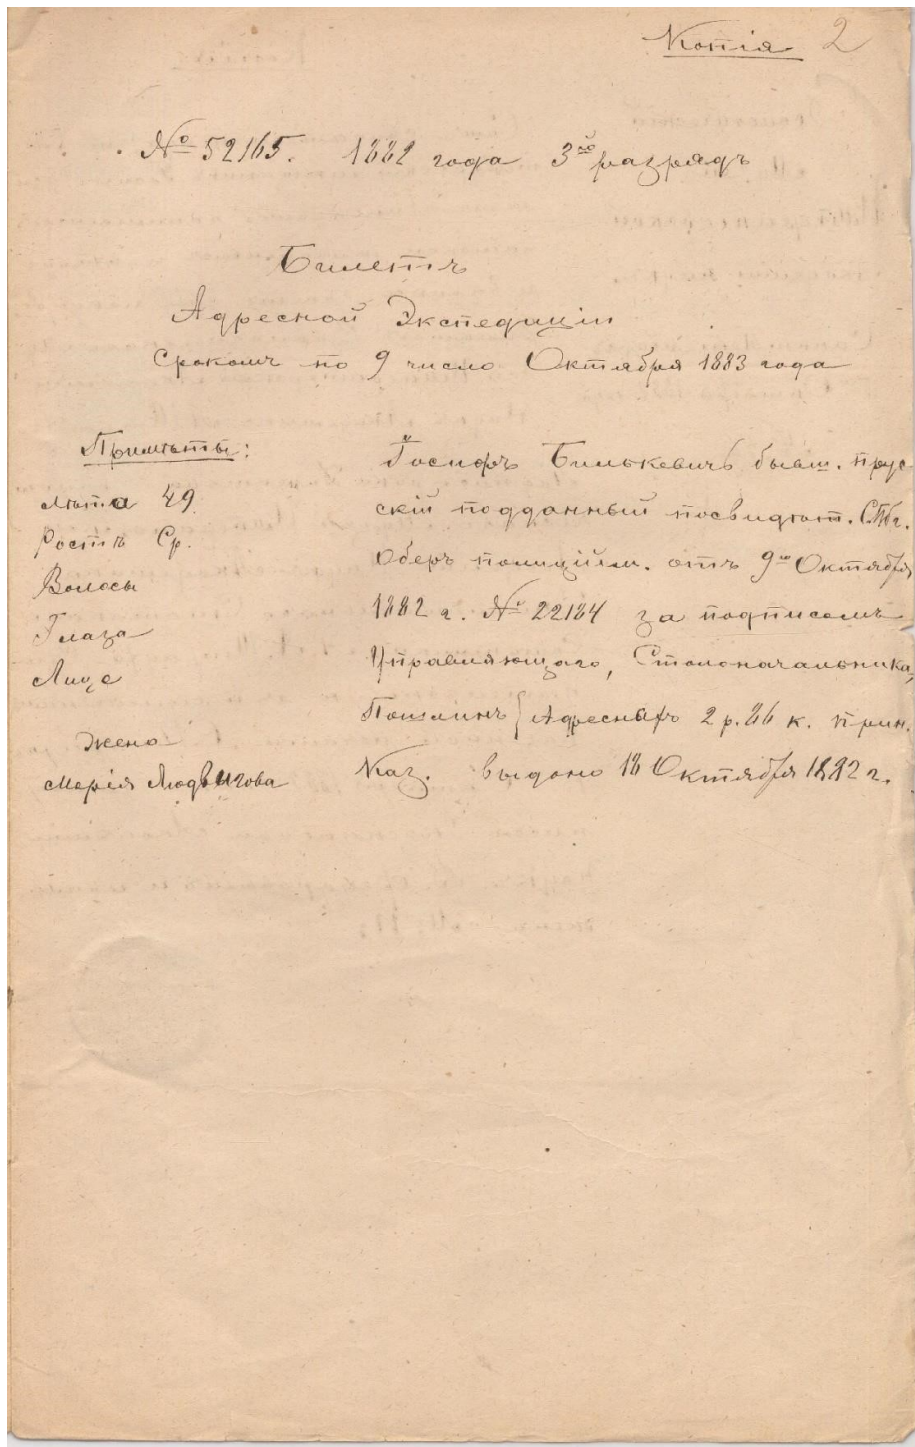 Копія 2
№ 52165. 1882 года 3го разрядъ
Билетъ
Адресной Экспедиціи
Срокомъ по 9 число Октября 1883 года
Примѣты:
Лѣта 49
Ростъ Ср.
Волосы
Глаза
Лице
Жена
Марія Людвигова
Іосифъ Билькевичъ бывш. прус
скій подданный по свидѣт. СПБг.
Оберъ полиційм. отъ 9го Октября
1882 г. № 22184 за подписомъ
Управляющаго, Столоначальника,
Пошлинъ } Адресныхъ 2 р. 86 к. прин.
Каз. выдано 18 Октября 1882 г.